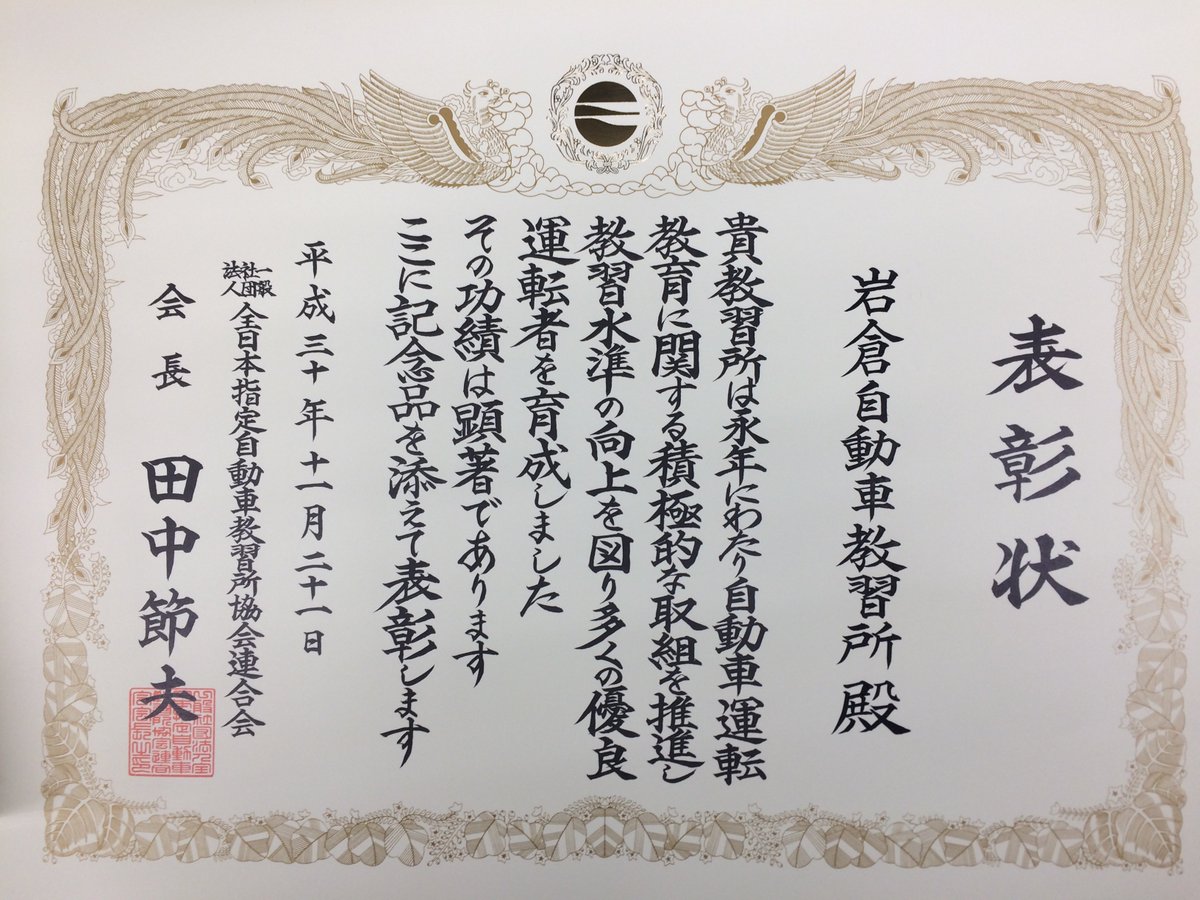 表彰状
岩倉自動車教習所 殿
貴教習所は永年にわたり自動車運転
教育に関する積極的な取組を推進し
教習水準の向上を図り多くの優良
運転者を育成しました
その功績は顕著であります
ここに記念品を添えて表彰します
平成三十年十一月二十一日
一般社団法人 全日本指定自動車教習所協会連合会
会長 田中節夫